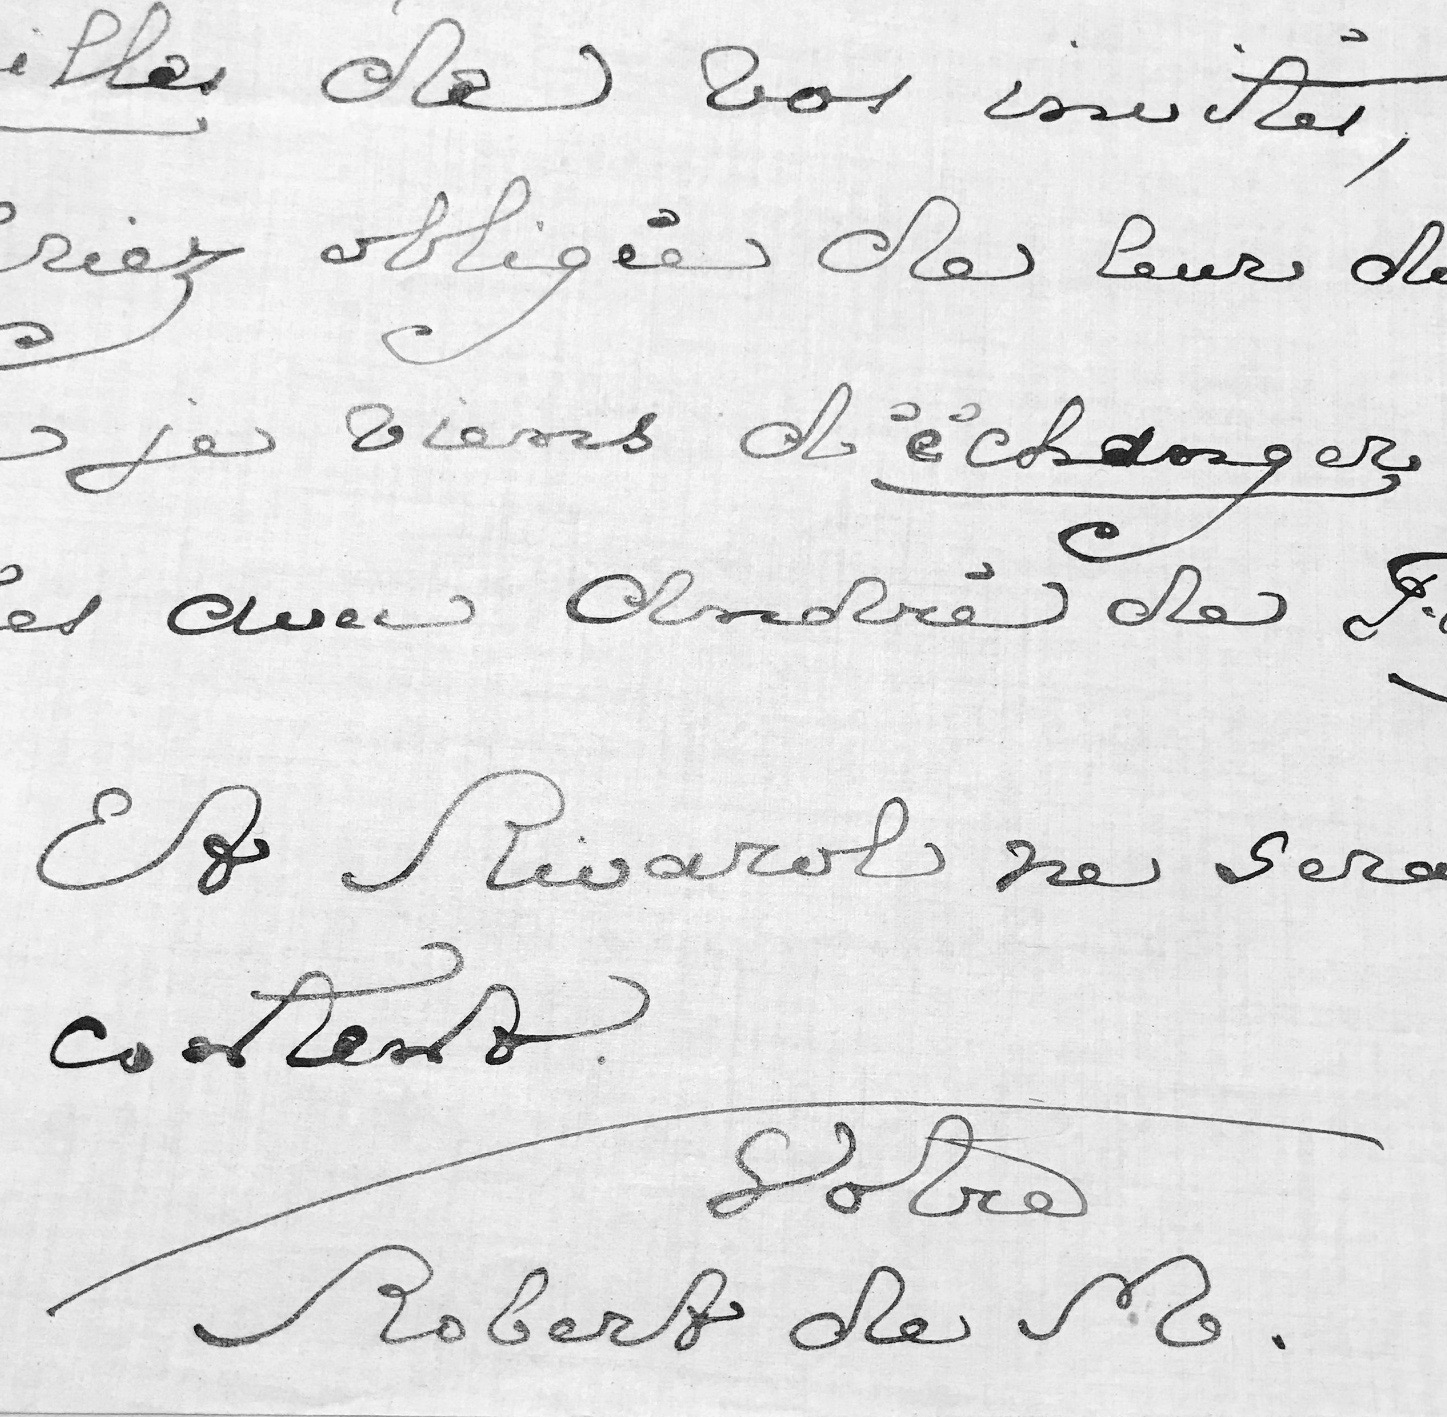 illes de vos invités,
riez obligé de leur de
je viens d'échanger
es avec André de F.
Et Rivarol ne sera
content.
Votre
Robert de M.